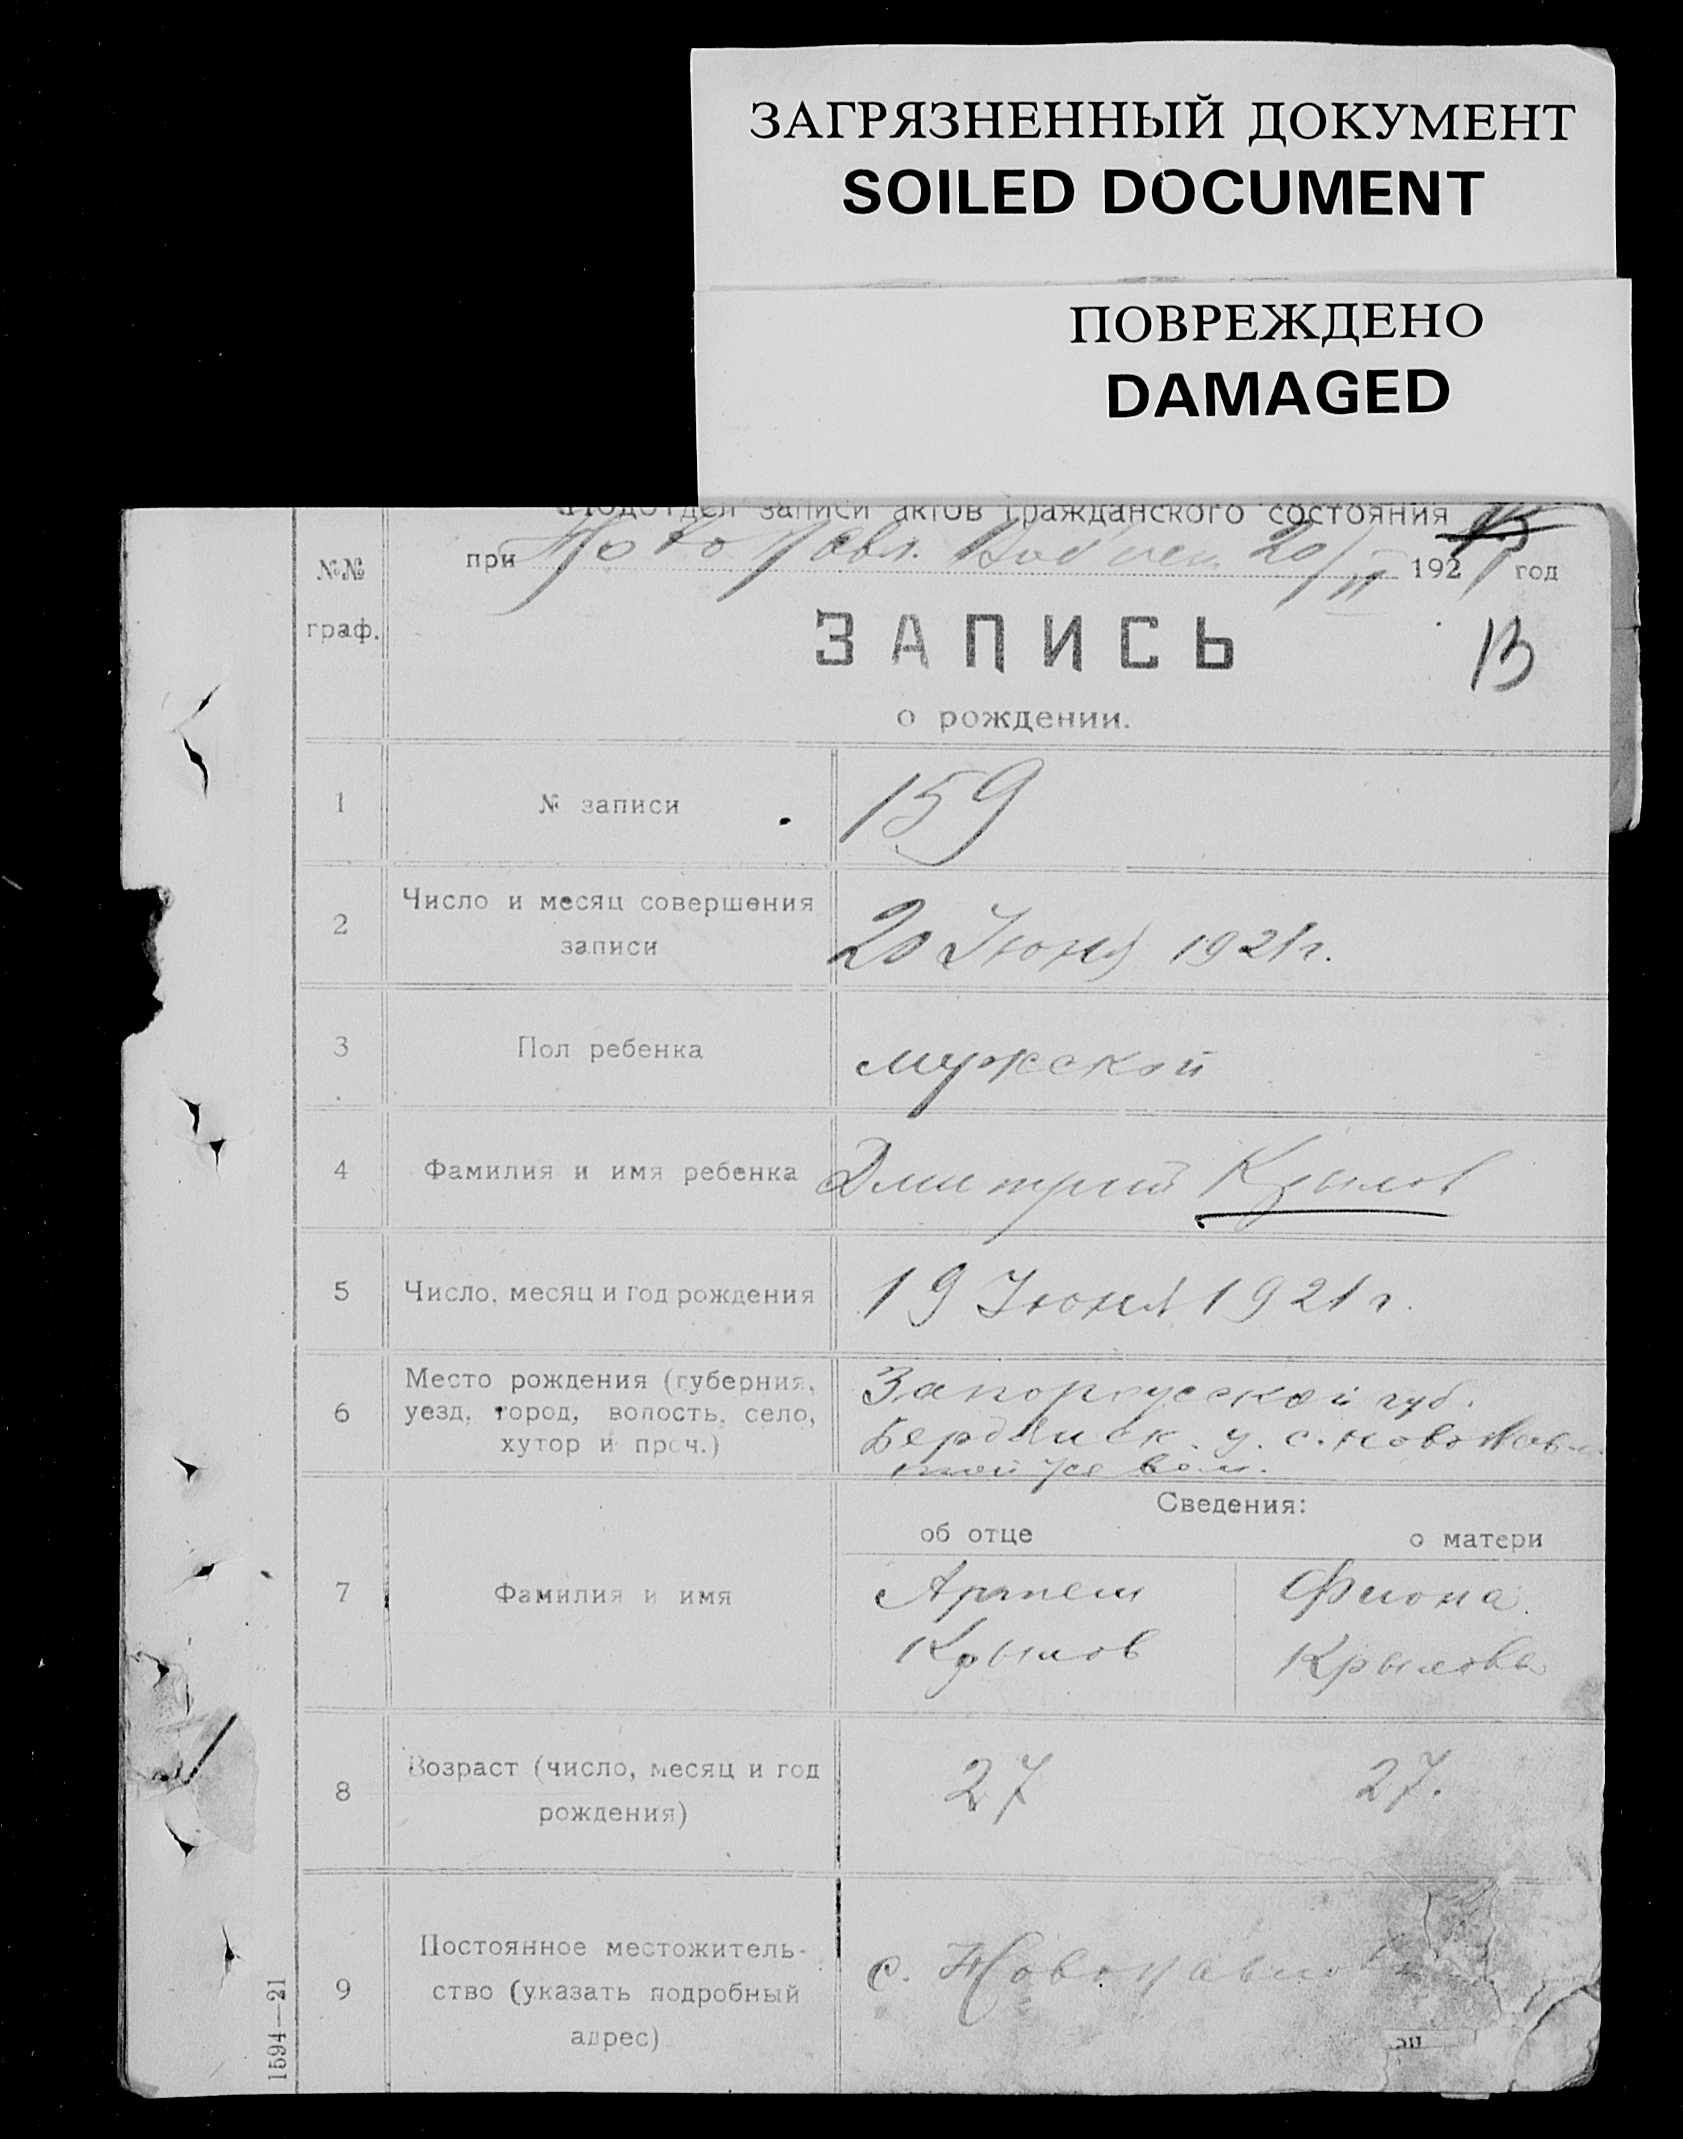 ЗАГРЯЗНЕННЫЙ ДОКУМЕНТ
SOILED DOCUMENT
ПОВРЕЖДЕНО
DAMAGED
Подотдел записи актов гражданского состояния
при Новопавл. 20/VI 1921 год
№№
граф.
ЗАПИСЬ
13
о рождении.
1 № записи 159
2 Число и месяц совершения
записи
20 Июня 1921 г.
3 Пол ребенка мужской
4 Фамилия и имя ребенка Дмитрий Крылов
5 Число, месяц и год рождения 19 Июня 1921 г.
6 Место рождения (губерния,
уезд, город, волость, село,
хутор и проч.)
Запорожской губ.
Бердянск. у. с. Новопавл.
той же вол.
Сведения:
об отце о матери
7 Фамилия и имя
Артем Фиона
Крылов Крылова
8 Возраст (число, месяц и год
рождения)
27 27.
9 Постоянное местожитель-
ство (указать подробный
адрес)
с. Новопавловка
1594—21